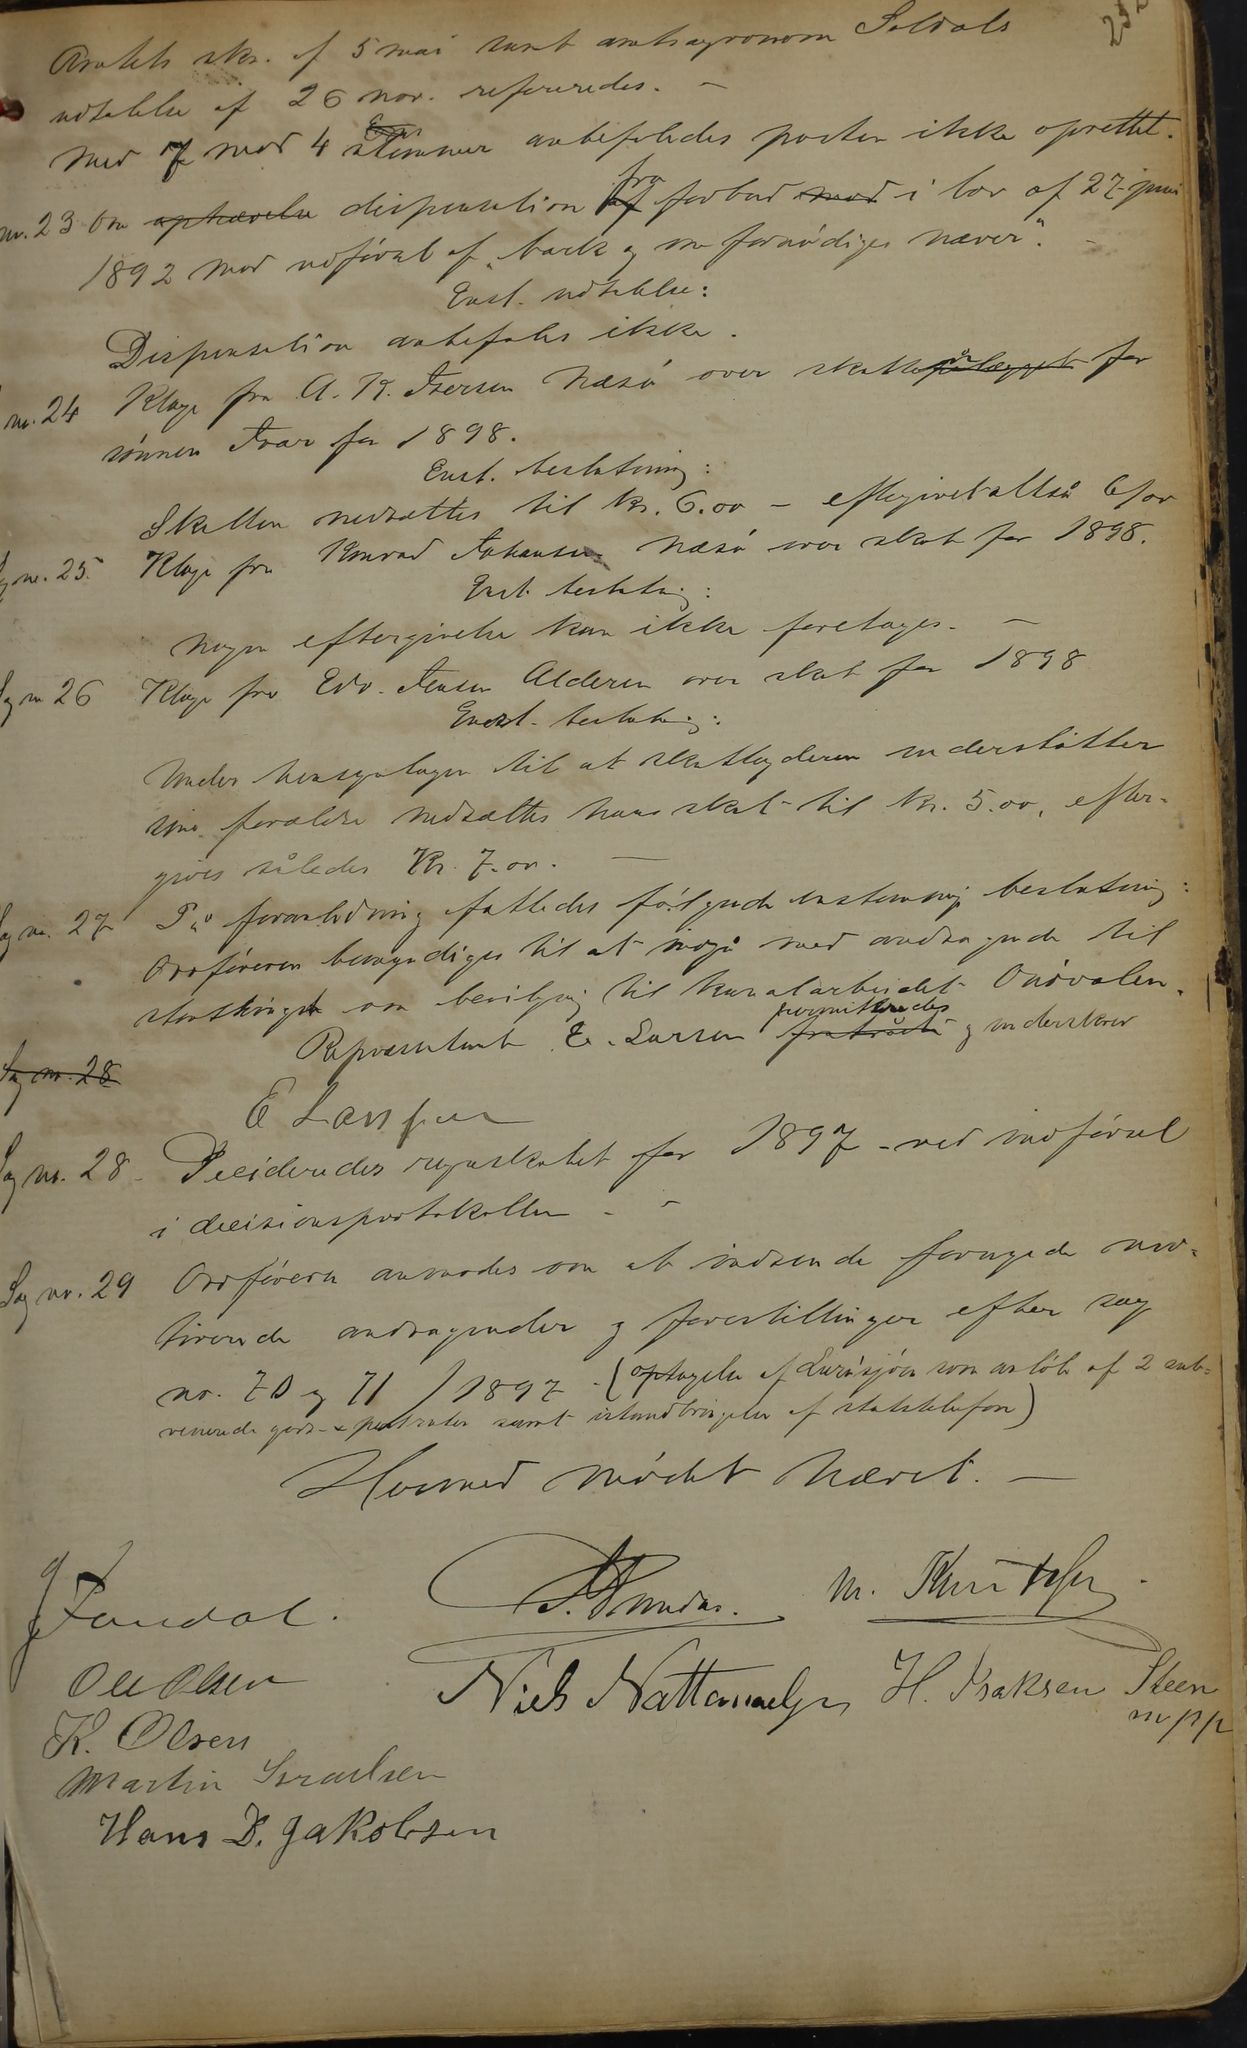 252
Amtets skr. af 5 mai samt amtsagronom Soldals
udtalelse af 26 nov. refereredes. –
Med 7 mod 4 stemmer anbefaledes posten ikke oprettet.
nr. 23 Om ophævelse dispensation af fra forbud mod i lov af 27 juni
1892 mod udførsel af "bark og om fornødiges næver". –
Enst. udtalelse:
Dispensation anbefales ikke.
nr. 24 Klage fra A. K. Iversen Næsø over skatte for
sønnen Ivar for 1898.
Enst. beslutning:
Skatten nedsættes til kr. 6.00 – eftergivet altså
Sag nr. 25. Klage fra Konrad Johansen Næsø over skat for 1898.
Enst. beslutning:
Nogen eftergivelse kan ikke foretages. –
Sag nr 26 Klage fra Edv. Jensen Alderen over skat for 1898
Enst. beslutning:
Under hensyntagen til at skatteyderen understøtter
sine forældre nedsættes hans skat til kr. 5.00, efter-
gives således Kr. 7.00. –
Sag nr. 27 På foranledning fattedes følgende enstemmig beslutning:
Ordføreren bemyndiges til at indgå med andragende til
storthinget om bevilgning til kanalarbeidet
Repræsentant E. Larsen fratrådte permitteredes og underskrev
Sag nr. 28
E Larssen
Sag nr. 28 – Decideredes regnskabet for 1897 – ved indførsel
i decisionsprotokollen – –
Sag nr. 29 Ordføreren anmodes om at indsende fornyede mo-
tiverede andragender og forestillinger efter sag
nr. 70 og 71 / 1897 – (optagelse af Lurøsjøen som anløb af 2 sub-
venerede gods- & postruter samt istandbringelse af statstelefon)
Hermed mødet hævet. –
J Dundas. M. Knutsen
Ole Olsen Niels Nattanaelsen H. Isaksen Steen
m p p
K. Olsen
Martin Israelsen
Hans D. Jakobsen